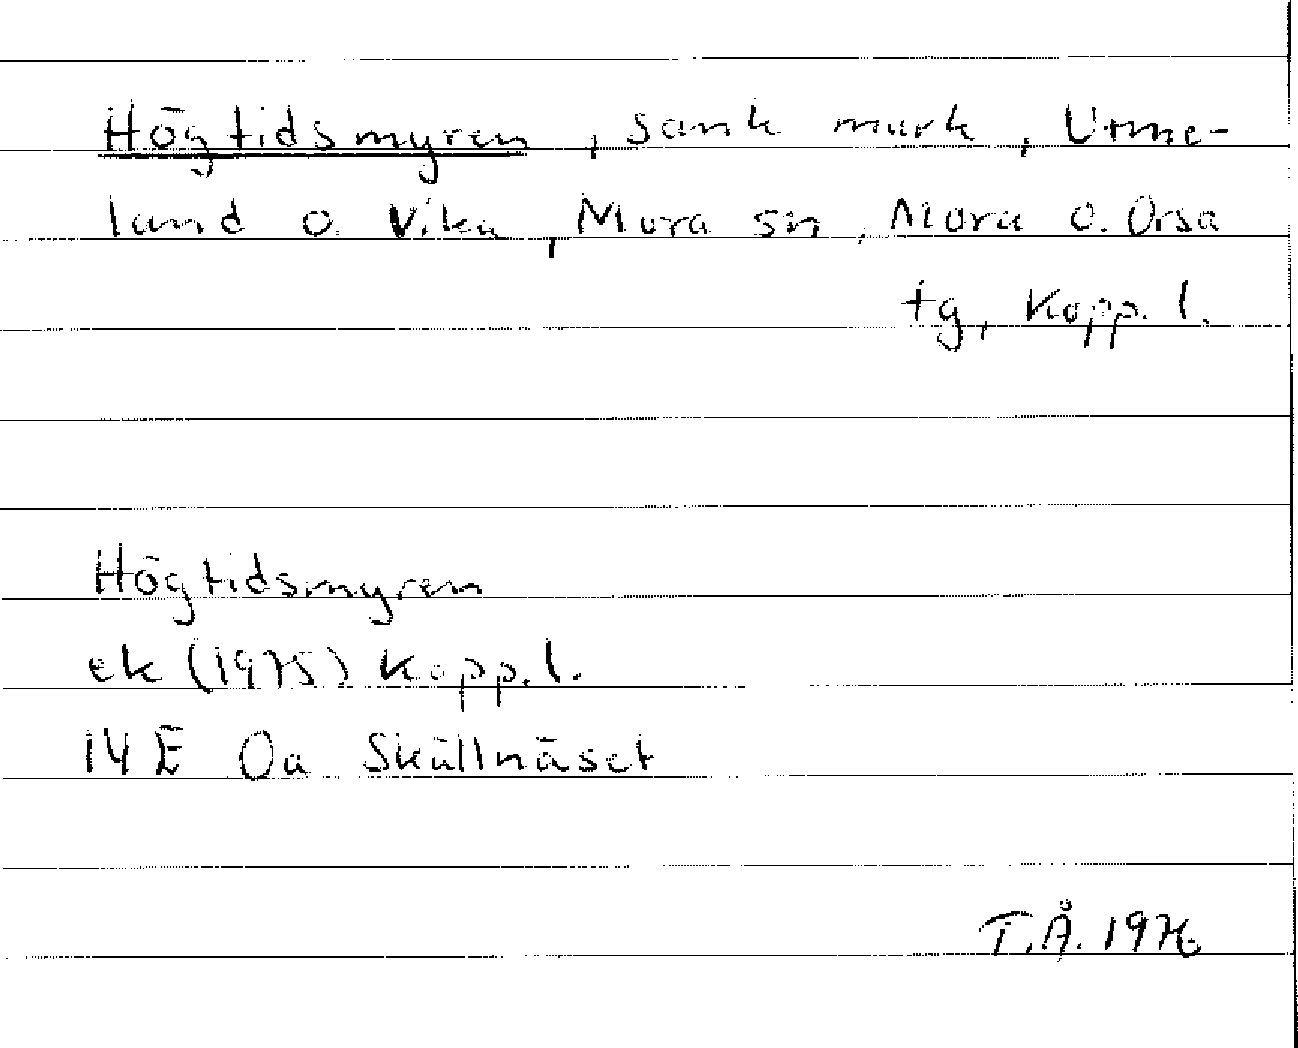 Högtidsmyren, sank mark, Utme-
land o. Vika, Mora sn, Mora o. Orsa
tg, Kopp. l.
Högtidsmyren
ek (1975) Kopp. l.
14 E 0a Skällnäset
T.Å. 1976